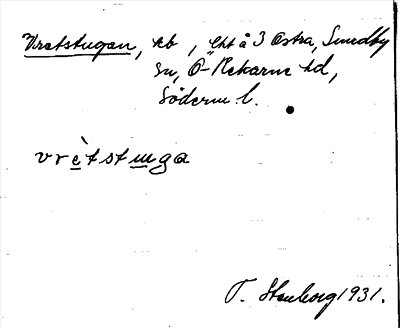 Vretstugan, kb, "lht å 3 Östra, Smedby
sn, Ö-Rekarne hd,
Söderm l.
vrètstuga
T. Stenborg 1931.